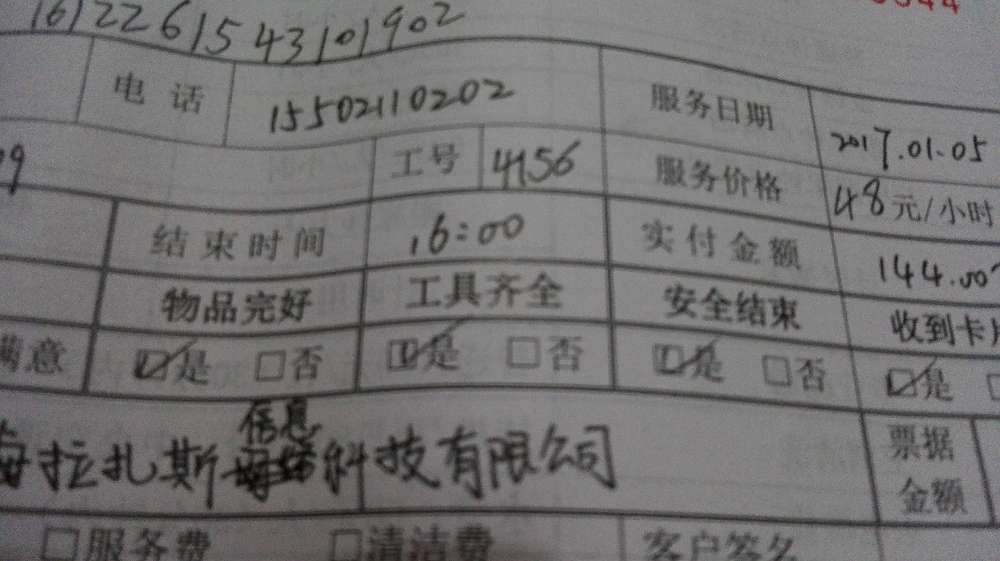 1612261543101902
电话 15502110202 服务日期 2017.01.05
工号 4156 服务价格 48元/小时
结束时间 16:00 实付金额 144.00
物品完好 工具齐全 安全结束 收到卡片
满意 ☑是 □否 ☑是 □否 ☑是 □否 ☑是
信息
海拉扎斯 科技有限公司 票据
金额
□服务费 □清洁费 客户签名